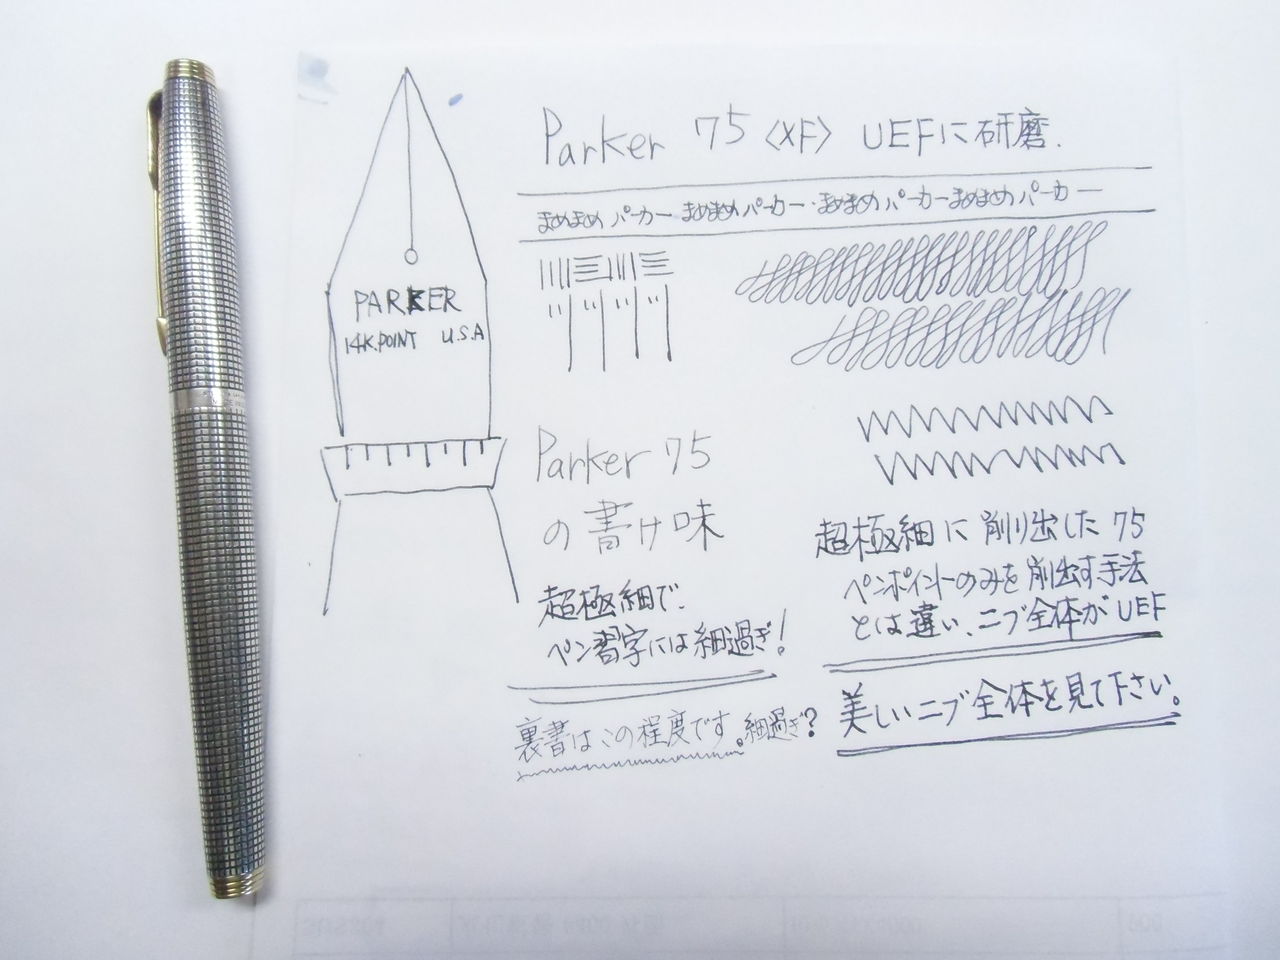 Parker 75 〈XF〉 UEFに研磨.
まめまめ パーカー まめまめ パーカー・まめまめ パーカー まめまめ パーカー
PARKER
14K.POINT U.S.A
Parker 75
の書け味
超極細で、
ペン習字には細過ぎ!
裏書はこの程度です。細過ぎ?
超極細に削り出した75
ペンポイントのみを削出す手法
とは違い、ニブ全体がUEF
美しいニブ全体を見て下さい。